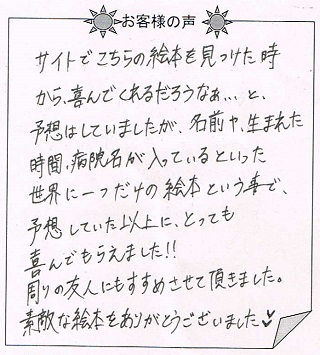 お客様の声
サイトでこちらの絵本を見つけた時
から、喜んでくれるだろうなぁ…と、
予想はしていましたが、名前や、生まれた
時間、病院名が入っているといった
世界に一つだけの絵本という事で、
予想していた以上に、とっても
喜んでもらえました!!
周りの友人にもすすめさせて頂きました。
素敵な絵本をありがとうございました♥